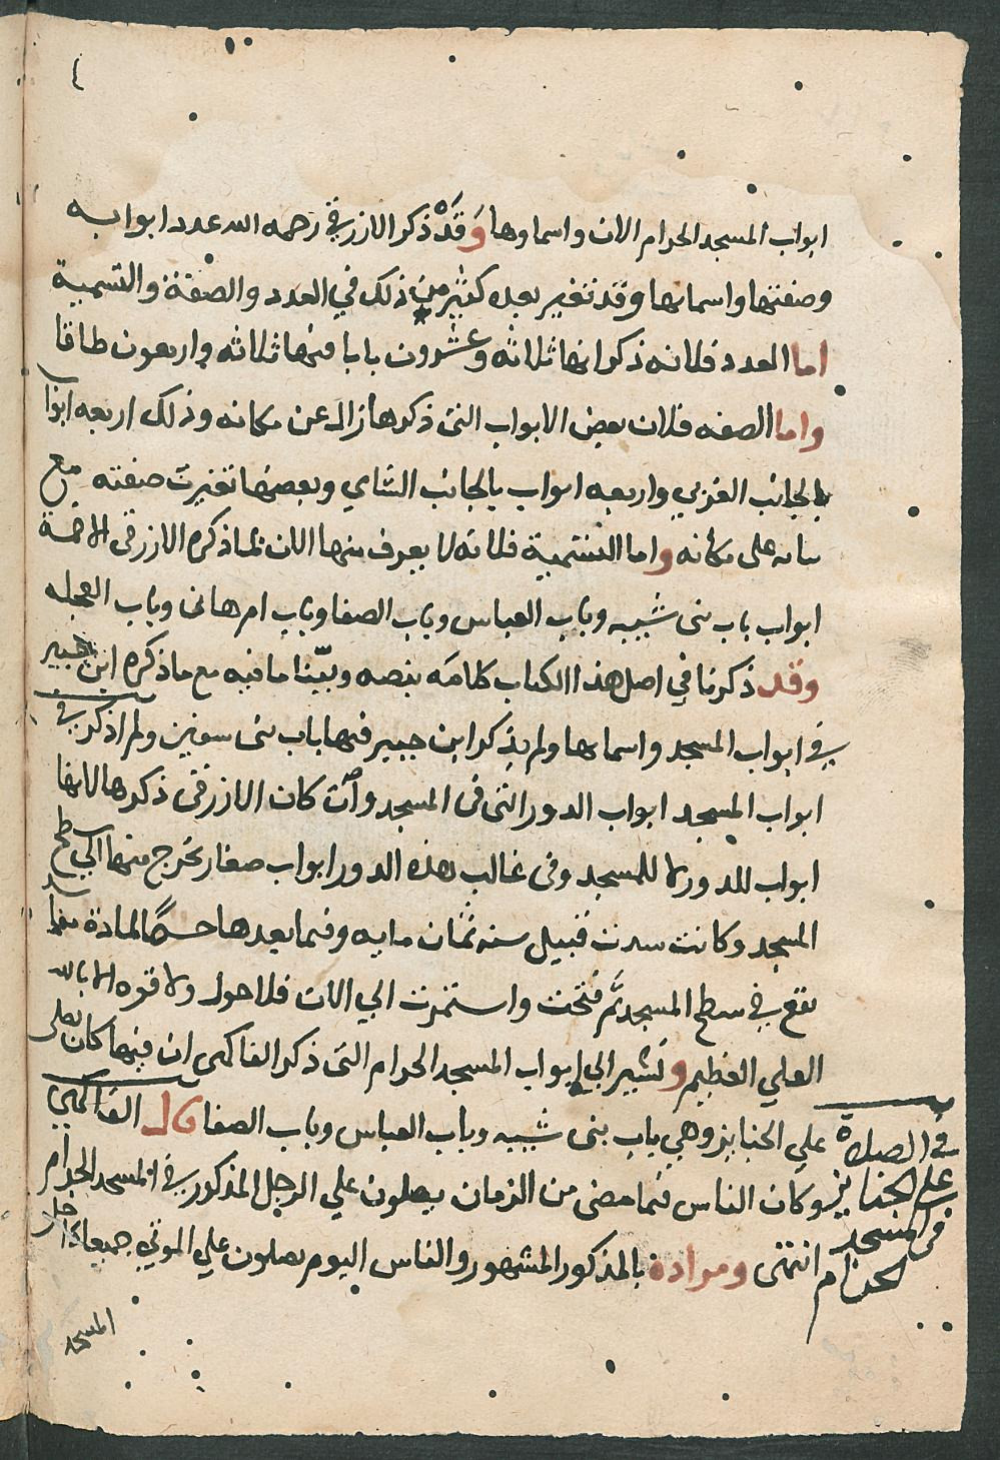 ابواب المسجد الحرام الان واسماوها وقد ذكر الازرقي رحمه الله عدد ابوابه
وصفتها واسماىها وقد تغير بعده كثير من ذلك في العدد والصفة والتسمية
اما العدد فلانه ذكر انها ثلاثة وعشرون بابا فيها ثلاثه واربعون طاقا
واما الصفه فلان بعض الابواب التى ذكرها زال عن مكانه وذلك اربعه ابوا
بالجانب الغربي واربعه ابواب بالجانب الشاي وبعضها تغيرت صفته مع
بىاىه على مكانه واما التسمية فلانه لا يعرف منها الان بما ذكره الازرقى الا خمسة
ابواب باب بنى شيبه وباب العباس وباب الصفا وباب ام هانى وباب العجله
وقد ذكرنا في اصل هذا الكتاب كلامه بنصه وبيّنا ما فيه مع ما ذكره ابن جبير
في ابواب المسجد واسماىها ولم يذكر ابن جبير فيها باب بنى سفين ولم اذكر في
ابواب المسجد ابواب الدور التى فى المسجد وان كان الازرقى ذكرها لانها
ابواب للدور لا للمسجد وفى غالب هذه الدور ابواب صغار يخرج منها الي سطح
المسجد وكانت سدت قبيل سنه ثمان مايه وفيما بعدها حسمًا لمادة مفاسد
تقع في سطح المسجد ثم فتحت واستمرت الي الان فلا حول ولا قوه الا بالله
العلي العظيم ونشير الي ابواب المسجد الحرام التى ذكر الفاكهى ان فيها كان يصلى
علي الجنايز وهي باب بنى شيبه وباب العباس وباب الصفا قال الفاكهي
وكان الناس فيما مضى من الزمان يصلون علي الرجل المذكور في المسجد الحرام
انتهى ومراده بالمذكور المشهور والناس اليوم يصلون علي الموتي جميعا داخل
المسجد
في الصلاة
على الجنايز
في المسجد
الحرام